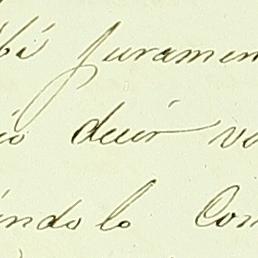 bi juramen
io decir v
endolo Con